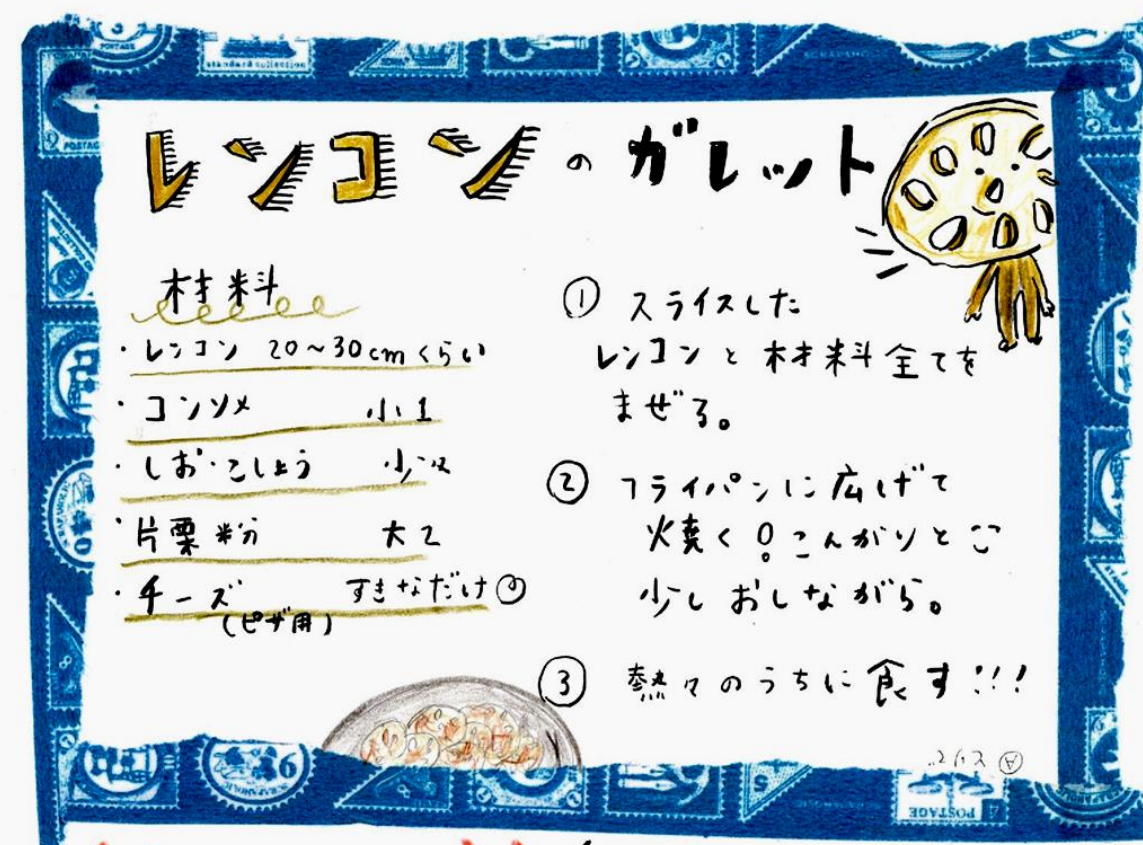 レンコンのガレット
材料
・レンコン 20〜30cmくらい
・コンソメ 小1
・しお・こしょう 少々
・片栗粉 大2
・チーズ すきなだけ
(ピザ用)
① スライスした
レンコンと材料全てを
まぜる。
② フライパンに広げて
焼く!こんがりと
少しおしながら。
③ 熱々のうちに食す!!!
standard collection
POSTAGE
POSTAGE